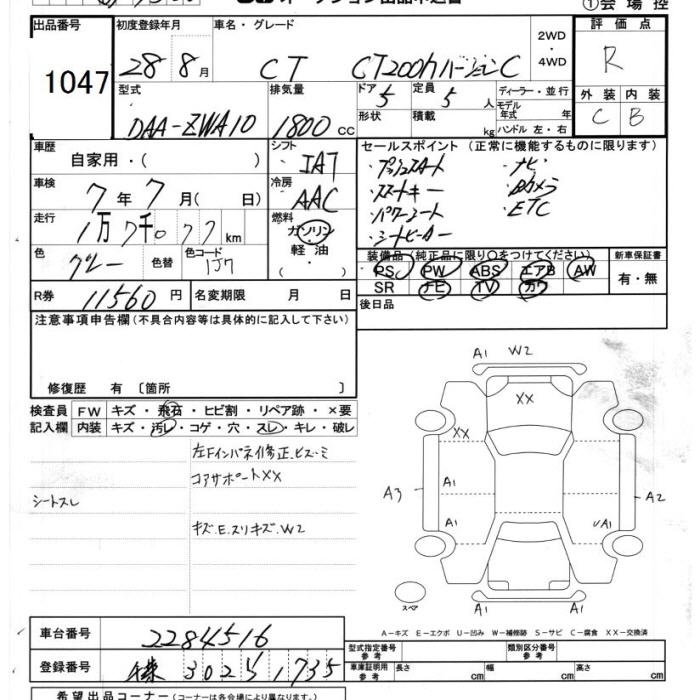 ①会場控
出品番号
1047
初度登録年月
28年8月
車名・グレード
CT CT200hバージョンC
2WD
・
4WD
評価点
R
外装 内装
C B
型式
DAA-ZWA10
排気量
1800cc
ドア
5
形状
定員
5人
積載
kg
ディーラー・並行
モデル年式 年
ハンドル 左・右
車歴
自家用・( )
シフト
IAT
車検
7年7月( 日)
冷房
AAC
走行
1万7千077km
燃料
ガソリン
軽油
・( )
色
グレー
色替
色コード
1J7
R券 11560円
名変期限 月 日
セールスポイント (正常に機能するものに限ります)
・プッシュスタート ・ナビ
・スマートキー ・Bカメラ
・パワーシート ・ETC
・シートヒーター
装備品(純正品に限り○をつけてください)
PS PW ABS エアB AW
SR ナビ TV カワ
新車保証書
有・無
後日品
注意事項申告欄(不具合内容等は具体的に記入して下さい)
修復歴 有 〔箇所 〕
検査員記入欄
FW キズ・飛石・ヒビ割・リペア跡・×要
内装 キズ・汚レ・コゲ・穴・スレ・キレ・破レ
左Fインパネ修正、ヒズミ
コアサポートXX
シートスレ
キズ.E.スリキズ.W2
A1 W2
XX
XX
A3
A1
A1
UA1
A2
A1
スペア
A-キズ E-エクボ U-凹み W-補修跡 S-サビ C-腐食 XX-交換済
車台番号 2284516
登録番号 302 1735
型式指定番号 参考
類別区分番号 参考
車庫証明用 参考
長さ cm 幅 cm 高さ cm
希望出品コーナー(コーナーは各会場により異なります。)